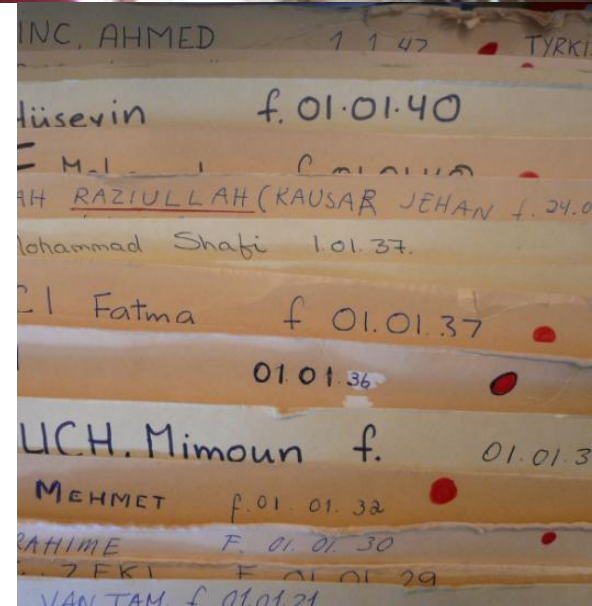 INC, AHMED 1 1 47 TYRKI
Hüseyin f. 01.01.40
AH RAZIULLAH (KAUSAR JEHAN f. 24.0
Mohammad Shafi 1.01.37.
CI Fatma f 01.01.37
01.01.36
UCH, Mimoun f. 01.01.3
MEHMET f.01.01.32
RAHIME F. 01.01.30
ZEKI F 01 01 29
VAN TAM f 01.01.21